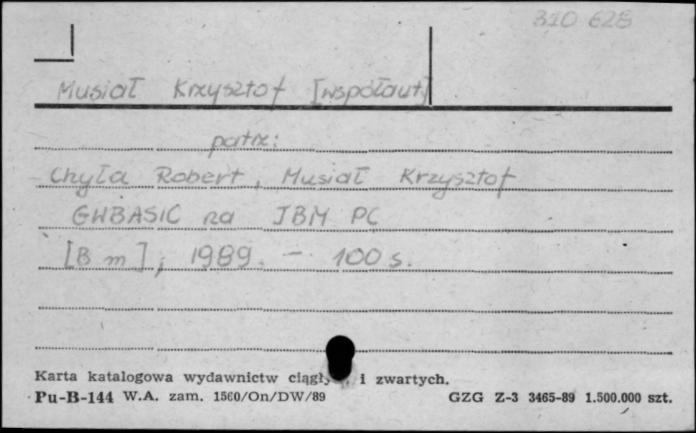 310 628
Musiał Krzysztof [współaut]
patrz:
Chyła Robert, Musiał Krzysztof
GWBASIC na IBM PC
[B m], 1989. - 100 s.
Karta katalogowa wydawnictw i zwartych.
Pu-B-144 W.A. zam. 1560/On/DW/89 GZG Z-3 3465-89 1.500.000 szt.